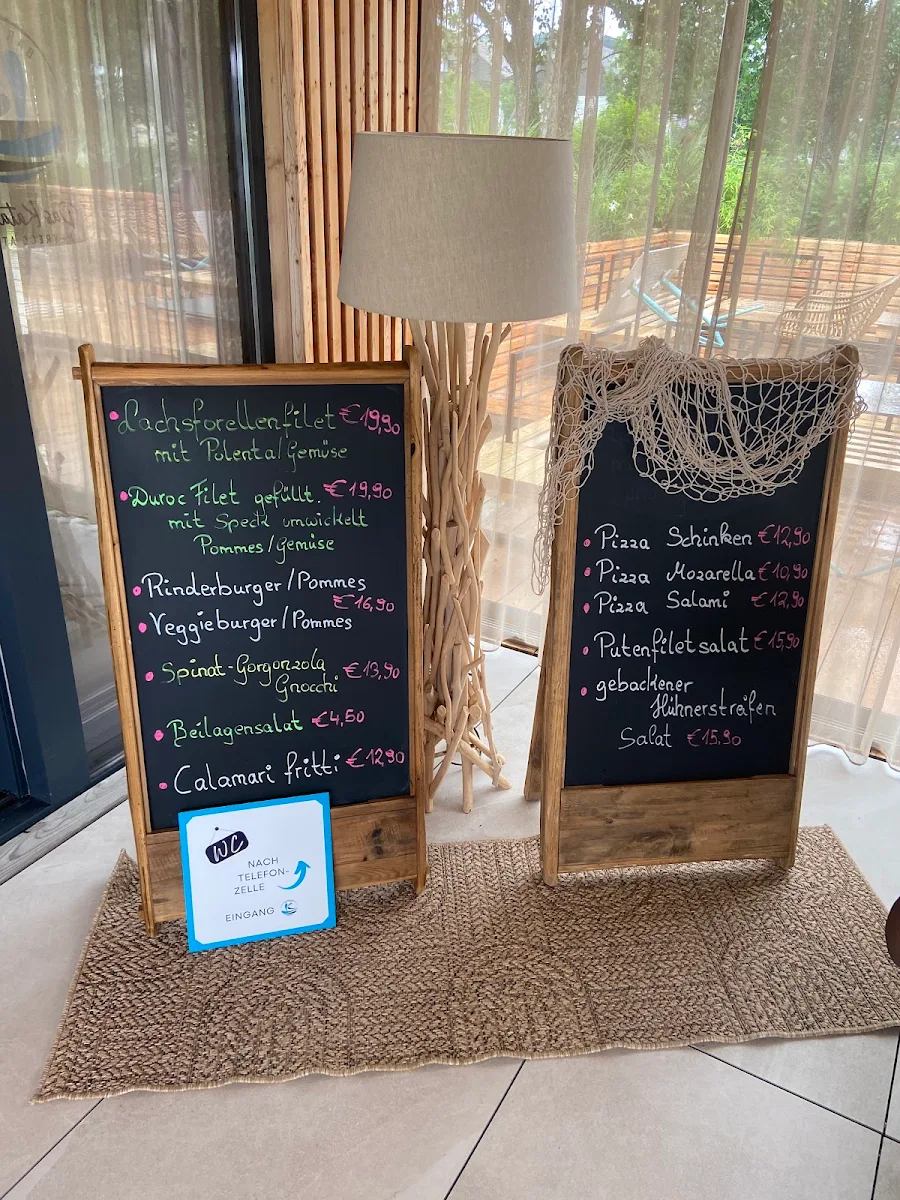 Lachsforellenfilet €19,90
mit Polenta/Gemüse
Duroc Filet gefüllt. €19,90
mit Speck umwickelt
Pommes/Gemüse
Rinderburger/Pommes
€16,90
Veggieburger/Pommes
Spinat-Gorgonzola €13,90
Gnocchi
Beilagensalat €4,50
Calamari fritti €12,90
WC
NACH
TELEFON-
ZELLE
EINGANG
Pizza Schinken €12,90
Pizza Mozarella €10,90
Pizza Salami €12,90
Putenfiletsalat €15,90
gebackener
Hühnerstreifen
Salat €15,90